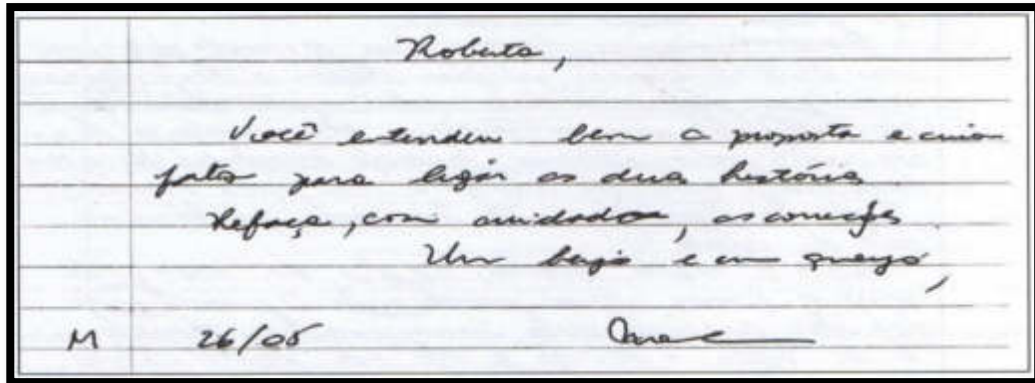 Roberta,
Você entendeu bem a proposta e criou
fatos para ligar as duas histórias.
Refaça, com cuidado, as correções
Um beijo e um queijo,
M 26/05